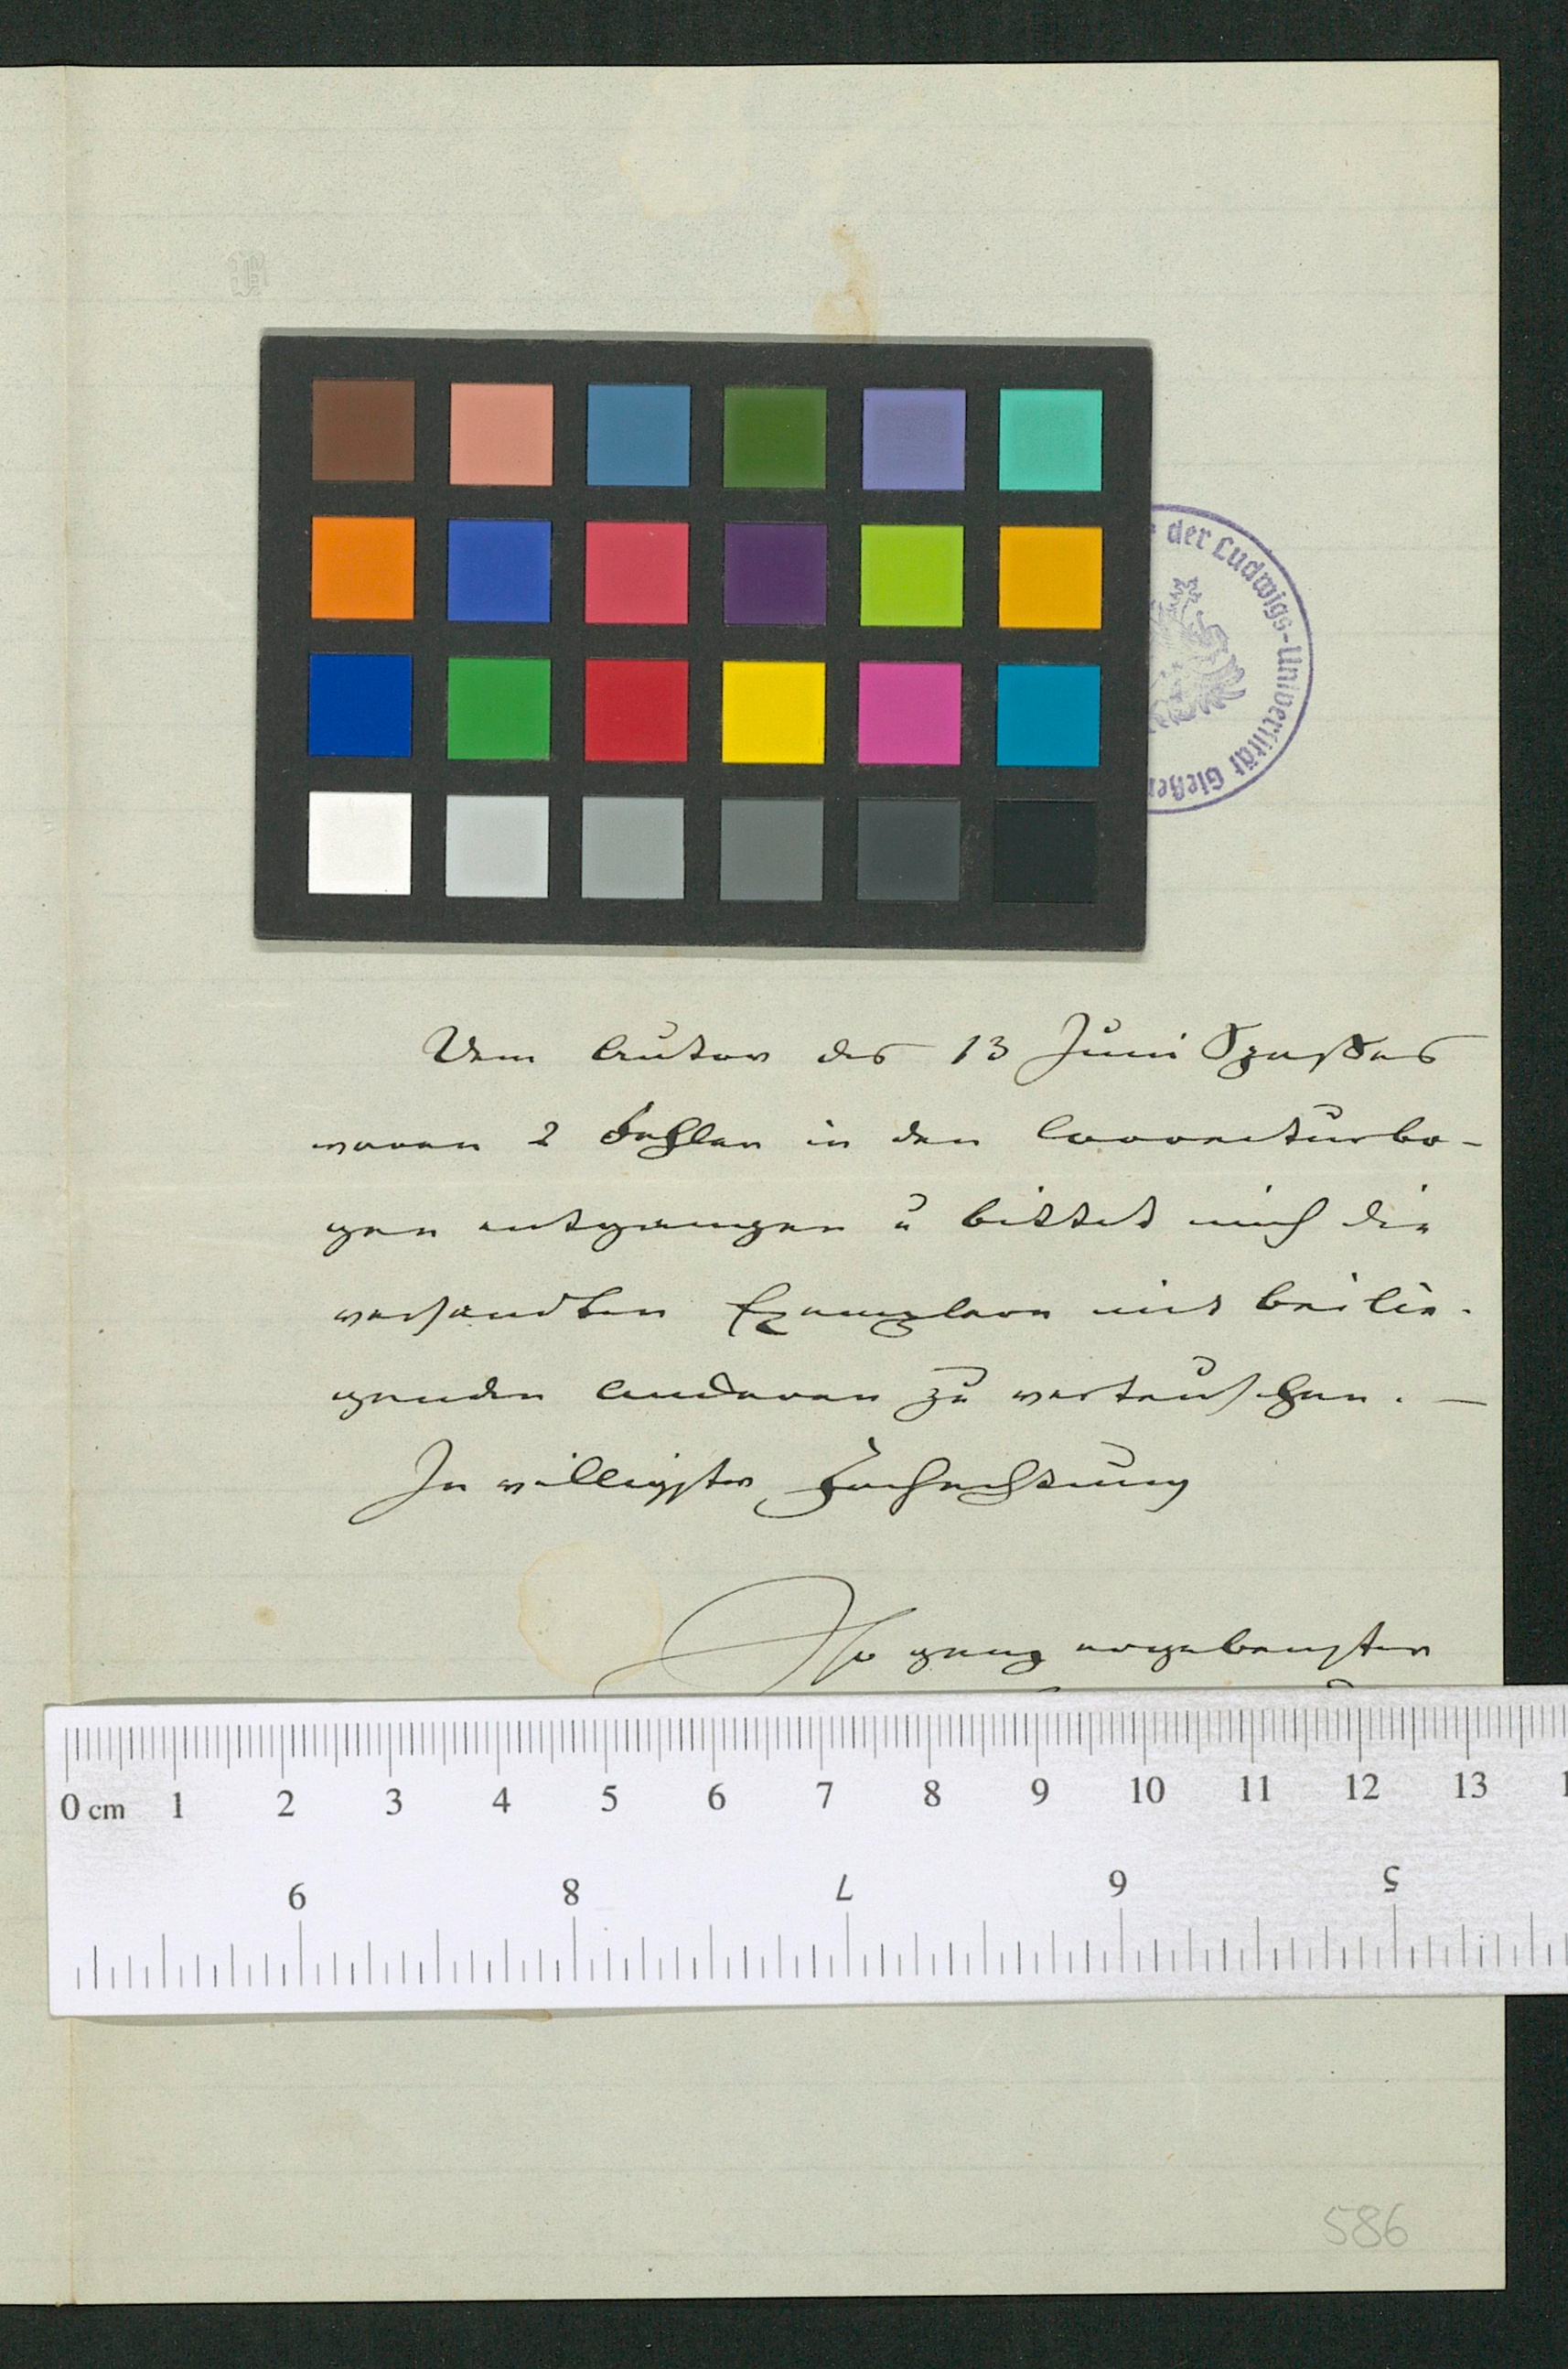 der Ludwigs-Universität Gießen
Dem Autor des 13 Juni Spaßes
waren 2 Fehler in den Correcturbo-
gen entgangen u bittet mich die
versandten Exemplare mit beilie-
genden anderen zu vertauschen. —
In willigster Hochachtung
ganz ergebenster
0 cm 1 2 3 4 5 6 7 8 9 10 11 12 13 1
9 8 7 6 5
586